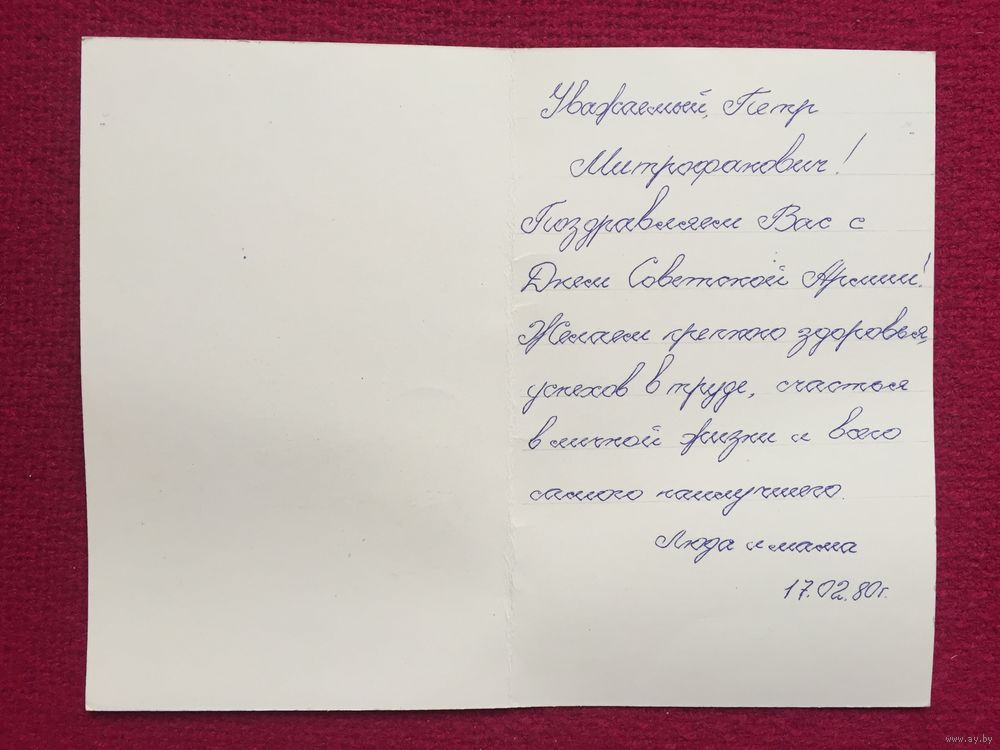 Уважаемый, Петр
Митрофанович!
Поздравляем Вас с
Днем Советской Армии!
Желаем крепкого здоровья,
успехов в труде, счастья
в личной жизни и всего
самого наилучшего.
Люда и мама
17.02.80г.
www.ay.by